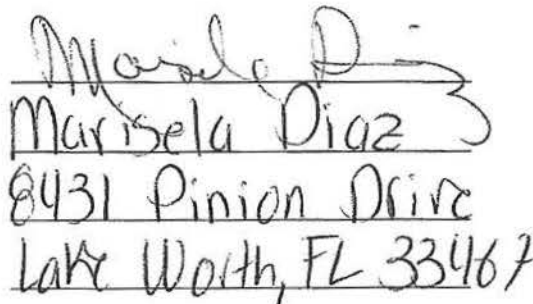 Marisela Diaz
Marisela Diaz
8431 Pinion Drive
Lake Worth, FL 33467